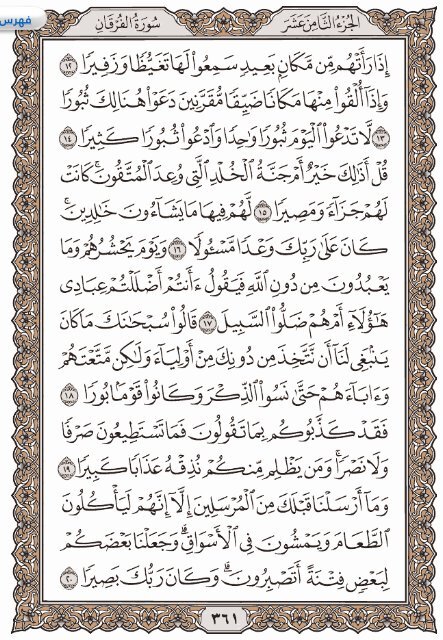 فهرس
الجزء الثامن عشر
سورة الفرقان
إِذَا رَأَتْهُم مِّن مَّكَانٍۭ بَعِيدٍ سَمِعُوا۟ لَهَا تَغَيُّظًا وَزَفِيرًا ١٢
وَإِذَآ أُلْقُوا۟ مِنْهَا مَكَانًا ضَيِّقًا مُّقَرَّنِينَ دَعَوْا۟ هُنَالِكَ ثُبُورًا
١٣ لَّا تَدْعُوا۟ ٱلْيَوْمَ ثُبُورًا وَٰحِدًا وَٱدْعُوا۟ ثُبُورًا كَثِيرًا ١٤
قُلْ أَذَٰلِكَ خَيْرٌ أَمْ جَنَّةُ ٱلْخُلْدِ ٱلَّتِى وُعِدَ ٱلْمُتَّقُونَ ۚ كَانَتْ
لَهُمْ جَزَآءً وَمَصِيرًا ١٥ لَّهُمْ فِيهَا مَا يَشَآءُونَ خَٰلِدِينَ ۚ
كَانَ عَلَىٰ رَبِّكَ وَعْدًا مَّسْـُٔولًا ١٦ وَيَوْمَ يَحْشُرُهُمْ وَمَا
يَعْبُدُونَ مِن دُونِ ٱللَّهِ فَيَقُولُ ءَأَنتُمْ أَضْلَلْتُمْ عِبَادِى
هَٰٓؤُلَآءِ أَمْ هُمْ ضَلُّوا۟ ٱلسَّبِيلَ ١٧ قَالُوا۟ سُبْحَٰنَكَ مَا كَانَ
يَنۢبَغِى لَنَآ أَن نَّتَّخِذَ مِن دُونِكَ مِنْ أَوْلِيَآءَ وَلَٰكِن مَّتَّعْتَهُمْ
وَءَابَآءَهُمْ حَتَّىٰ نَسُوا۟ ٱلذِّكْرَ وَكَانُوا۟ قَوْمًۢا بُورًا ١٨
فَقَدْ كَذَّبُوكُم بِمَا تَقُولُونَ فَمَا تَسْتَطِيعُونَ صَرْفًا
وَلَا نَصْرًا ۚ وَمَن يَظْلِم مِّنكُمْ نُذِقْهُ عَذَابًا كَبِيرًا ١٩
وَمَآ أَرْسَلْنَا قَبْلَكَ مِنَ ٱلْمُرْسَلِينَ إِلَّآ إِنَّهُمْ لَيَأْكُلُونَ
ٱلطَّعَامَ وَيَمْشُونَ فِى ٱلْأَسْوَاقِ ۗ وَجَعَلْنَا بَعْضَكُمْ
لِبَعْضٍ فِتْنَةً أَتَصْبِرُونَ ۗ وَكَانَ رَبُّكَ بَصِيرًا ٢٠
٣٦١